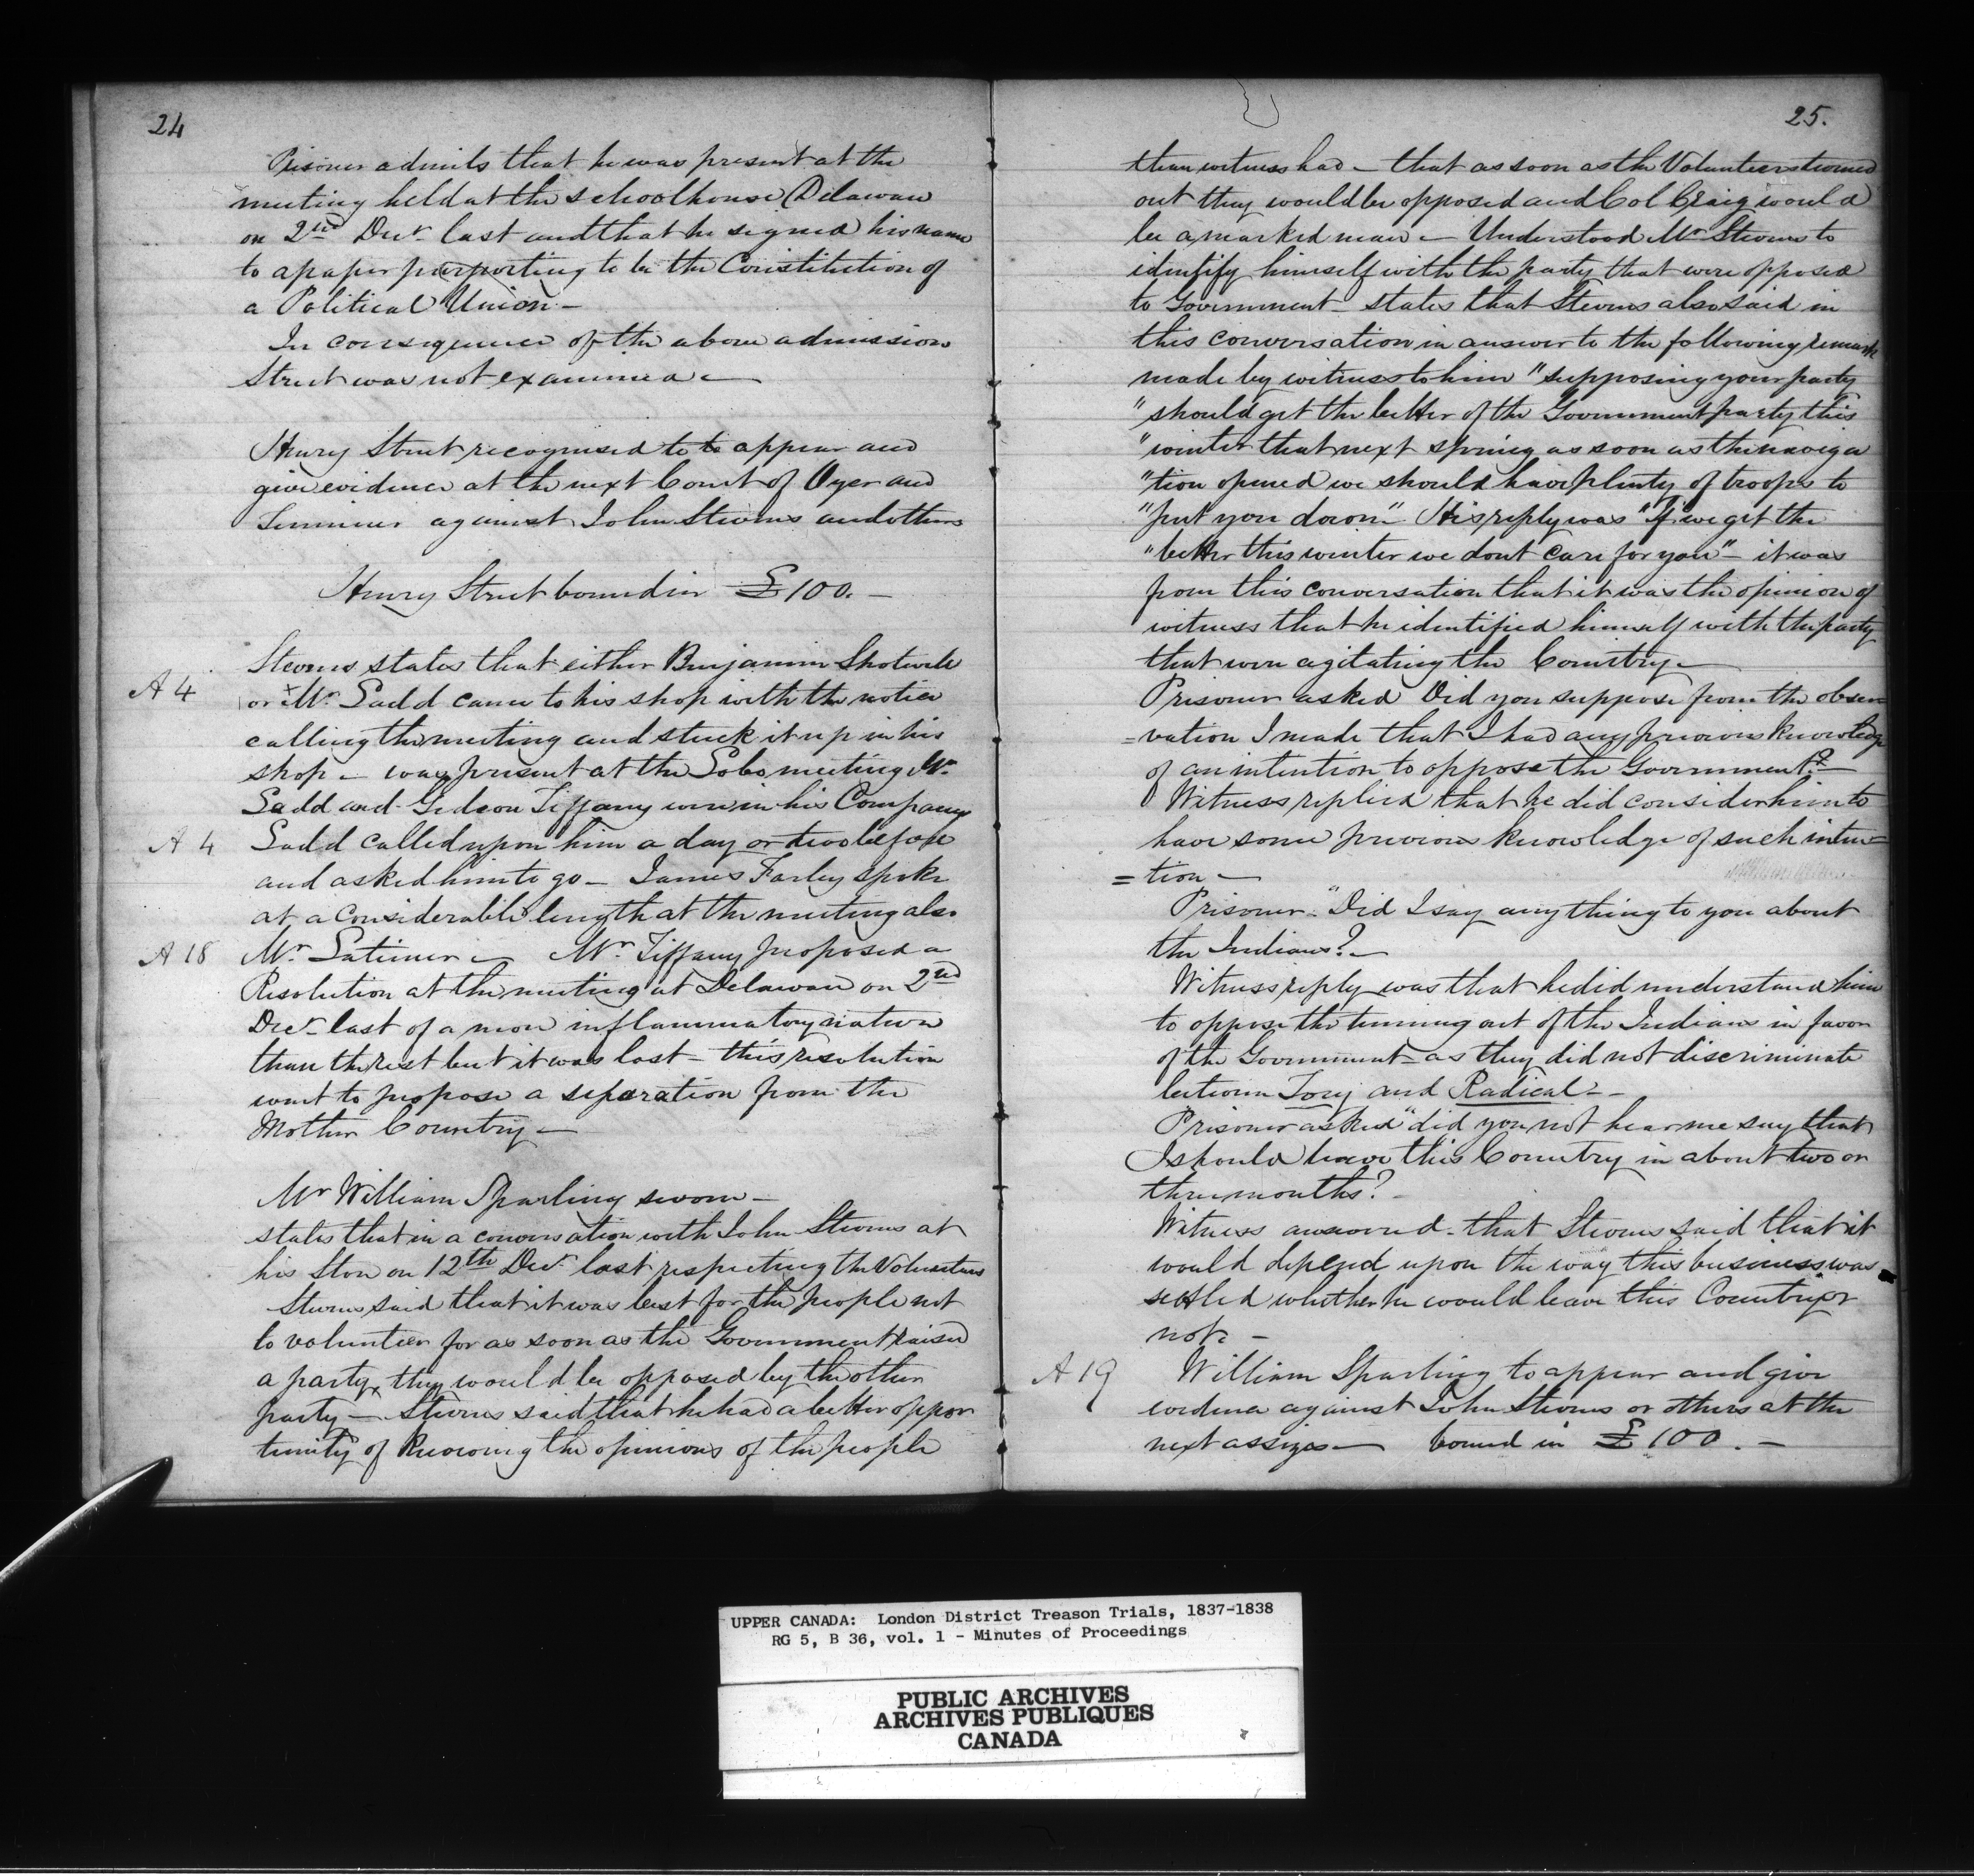 24
Prisoner admits that he was present at the
meeting held at the schoolhouse Delaware
on 2nd Decr. last and that he signed his name
to a paper purporting to be the Constitution of
a Political Union –
In consequence of the above admission
Street was not examined –
Henry Street recognised to to appear and
give evidence at the next Court of Oyer and
Terminer against John Stevens and others
Henry Street bound in £100. –
Stevens states that either Benjamin Shotwell
A 4 or Mr. Ladd came to his shop with the notice
calling the meeting and stuck it up in his
shop – was present at the Lobo meeting Mr.
Ladd and Gideon Tiffany were in his Company
A 4 Ladd called upon him a day or two before
and asked him to go – James Farley spoke
at a considerable length at the meeting also
A 18 Mr. Latimer – Mr. Tiffany proposed a
Resolution at the meeting at Delaware on 2nd
Decr. last of a more inflammatory nature
than the rest but it was lost – this resolution
went to propose a separation from the
Mother Country –
Mr William Sparling sworn –
states that in a conversation with John Stevens at
his Store on 12th Decr. last respecting the Volunteers
Stevens said that it was best for the people not
to volunteer for as soon as the Government raised
a party, they would be opposed by the other
party – Stevens said that he had a better oppor
tunity of knowing the opinions of the people
25.
than witness had – that as soon as the Volunteers turned
out they would be opposed and Col Craig would
be a marked man – Understood Mr. Stevens to
identify himself with the party that were opposed
to Government – states that Stevens also said in
this conversation in answer to the following remark
made by witness to him "supposing your party
"should get the better of the Government party this
"winter that next spring as soon as the naviga
"tion opened we should have plenty of troops to
"put you down" His reply was "If we get the
"better this winter we dont care for you" – it was
from this conversation that it was the opinion of
witness that he identified himself with the party
that were agitating the Country –
Prisoner asked Did you suppose from the obser
= vation I made that I had any previous knowledge
of an intention to oppose the Government? –
Witness replied that he did consider him to
have some previous knowledge of such inten–
= tion –
Prisoner. "Did I say any thing to you about
the Indians? –
Witness reply was that he did understand him
to oppose the turning out of the Indians in favor
of the Government – as they did not discriminate
between Tory and Radical –
Prisoner asked "did you not hear me say that
I should leave this Country in about two or
three months? –
Witness answered – that Stevens said that it
would depend upon the way this business was
settled whether he would leave this Country or
not. –
A 19 William Sparling to appear and give
evidence against John Stevens or others at the
next assizes – bound in £100. –
UPPER CANADA: London District Treason Trials, 1837-1838
RG 5, B 36, vol. 1 - Minutes of Proceedings
PUBLIC ARCHIVES
ARCHIVES PUBLIQUES
CANADA